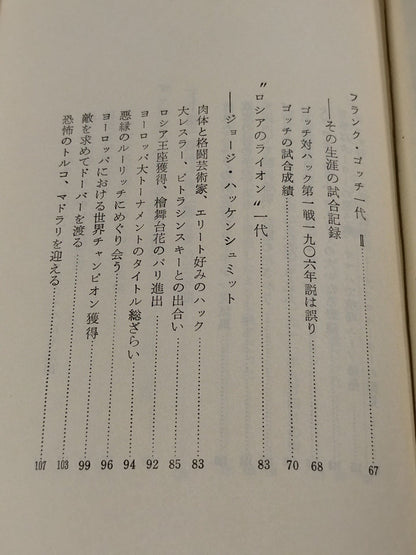 フランク・ゴッチ一代 Ⅱ
――その生涯の試合記録……67
ゴッチ対ハック第一戦一九〇六年説は誤り……68
ゴッチの試合成績……70
〝ロシアのライオン〟一代……83
――ジョージ・ハッケンシュミット
肉体と格闘芸術家、エリート好みのハック……83
大レスラー、ピトラシンスキーとの出合い……85
ロシア王座獲得、檜舞台花のパリ進出……92
ヨーロッパ大トーナメントのタイトル総ざらい……94
悪縁のルーリッチにめぐり会う……96
ヨーロッパにおける世界チャンピオン獲得……99
敵を求めてドーバーを渡る……103
恐怖のトルコ、マドラリを迎える……107